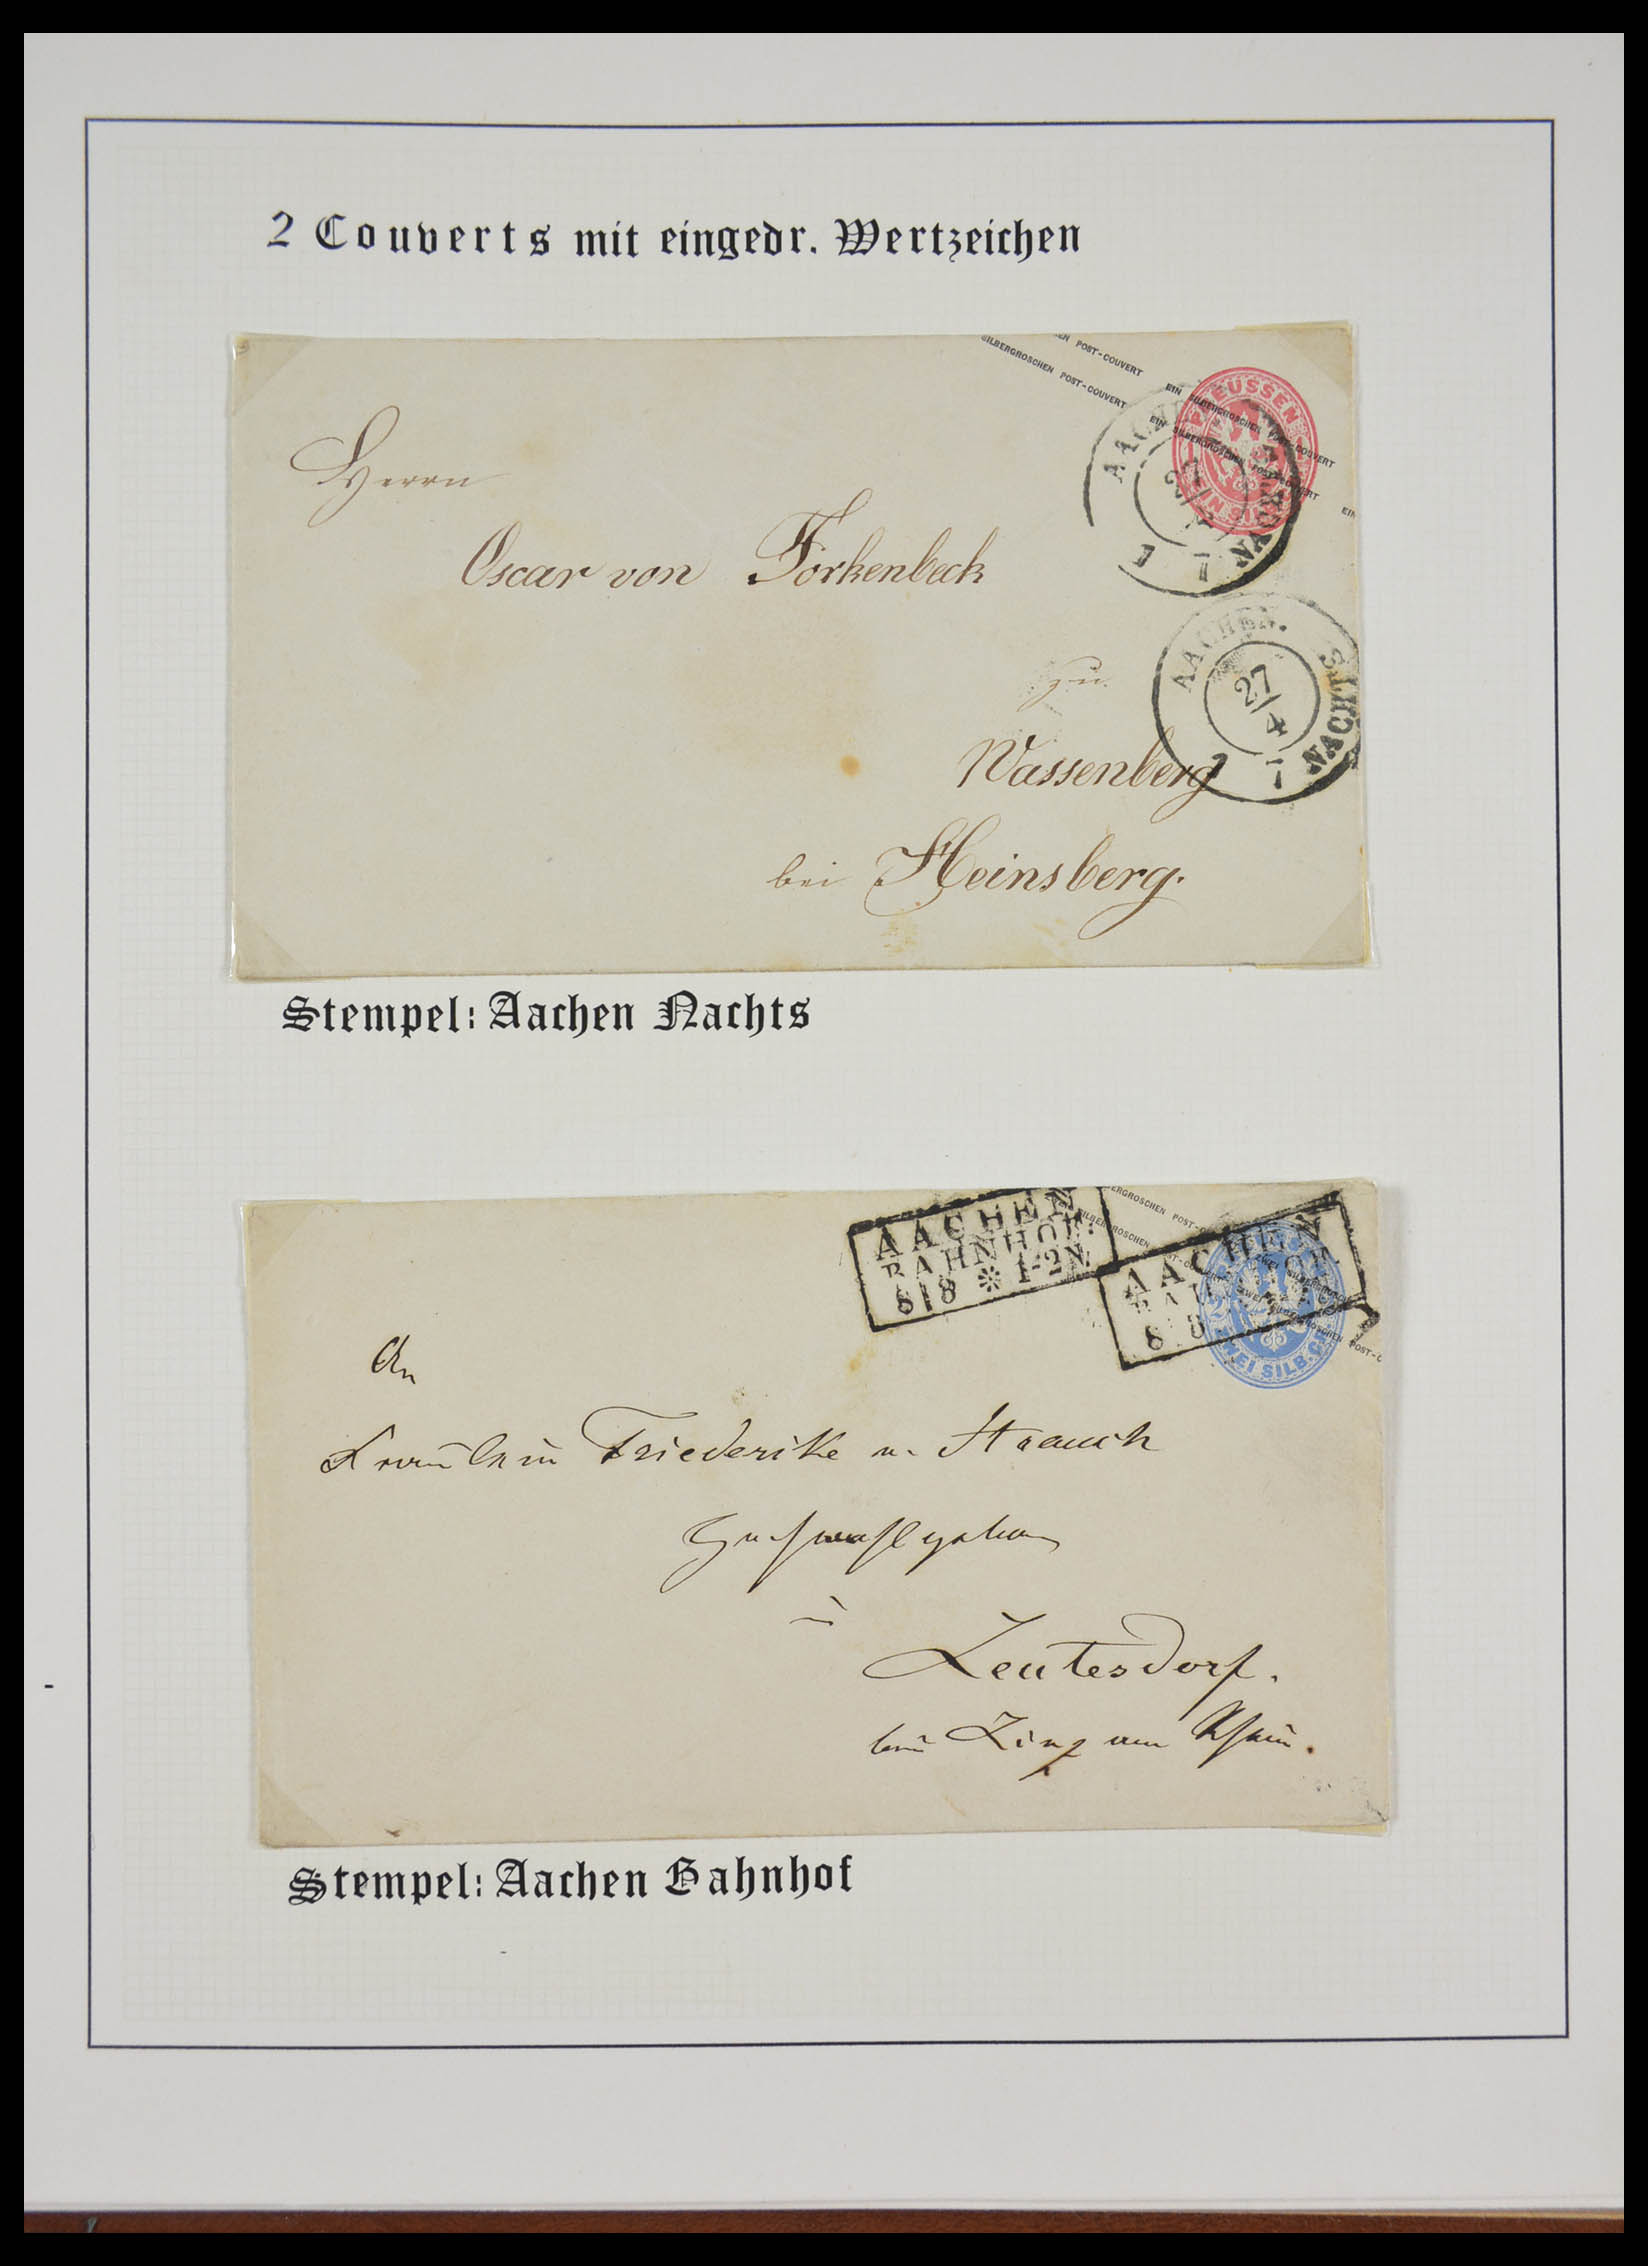 2 Couverts mit eingedr. Wertzeichen
SILBERGROSCHEN POST-COUVERT EIN SILBERGROSCHEN POST-COUVERT EIN
SILBERGROSCHEN POST-COUVERT EIN SILBERGROSCHEN POST-COUVERT
PREUSSEN
AACHEN
27
NACHTS
7
Herrn
Oscar von Forkenbeck
AACHEN.
27/4
NACHTS
7
zu
Wassenberg
bei Heinsberg.
Stempel: Aachen Nachts
AACHEN
BAHNHOF.
8 8 * 1-2N
SILBERGROSCHEN POST-
AACHEN
8 8
ZWEI SILB.GR.
An
Fräulein Friederike v. Strauch
in
Leutesdorf.
bei Linz am Rhein.
Stempel: Aachen Bahnhof